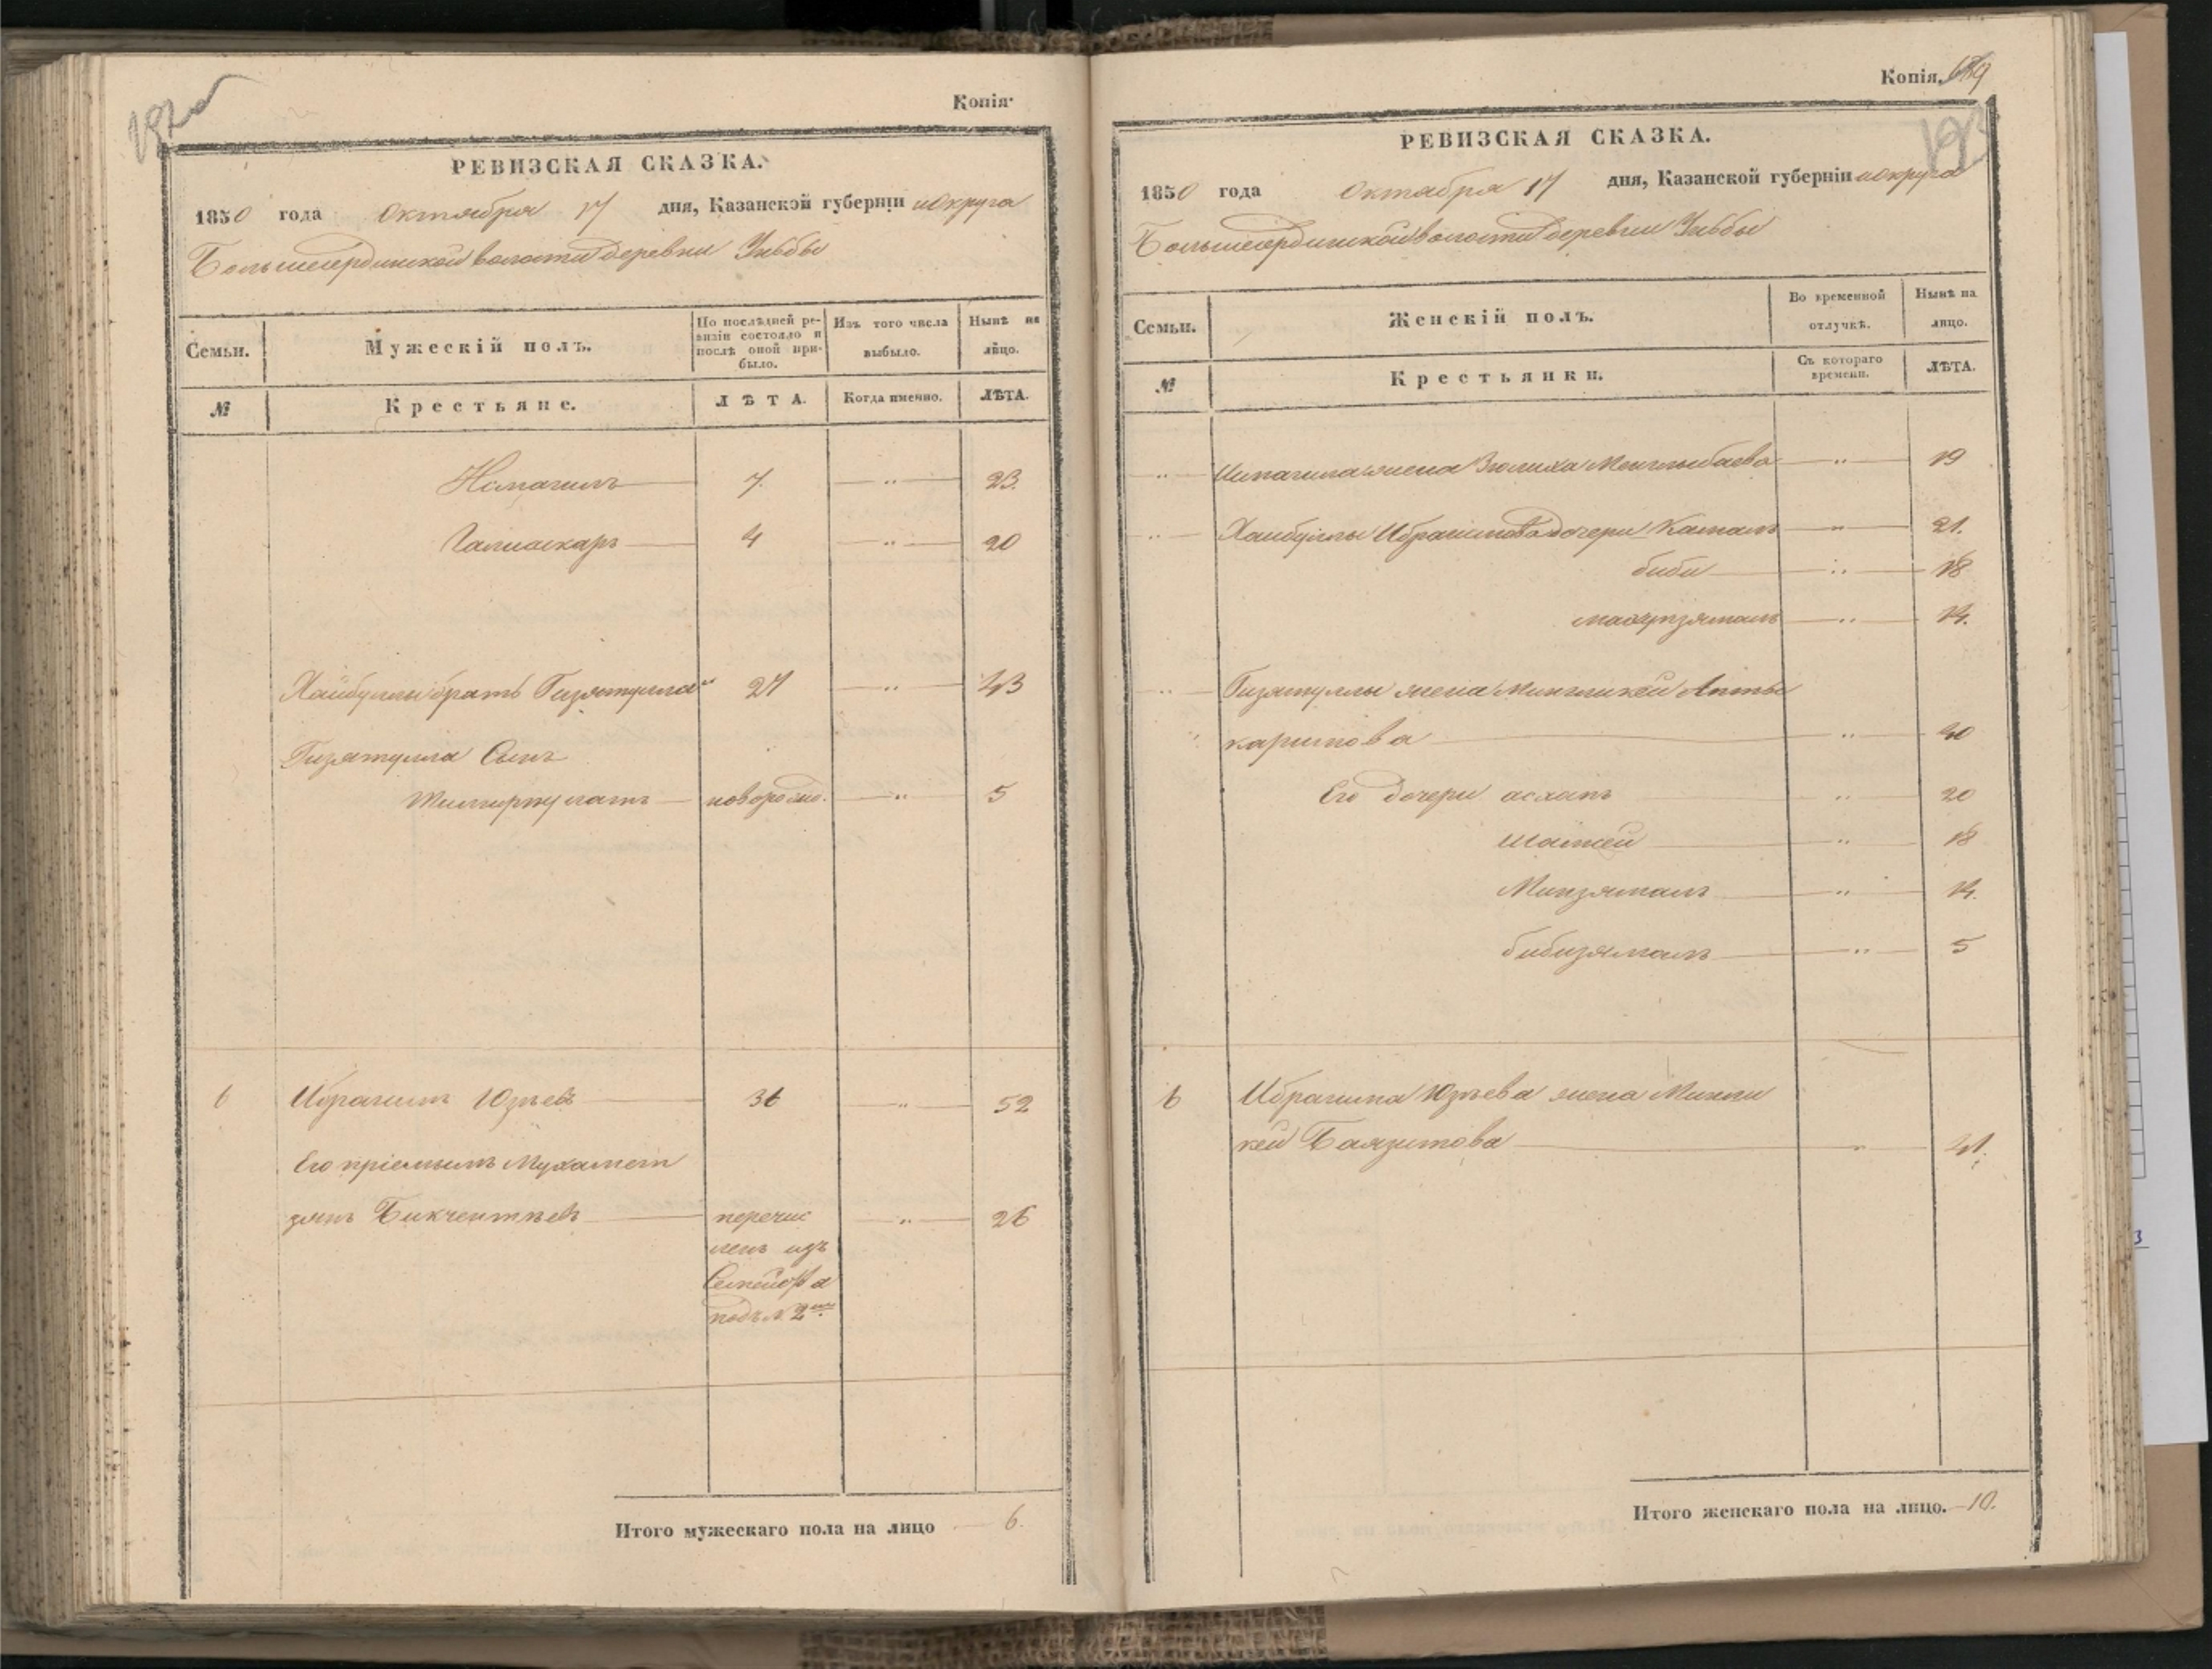 Копія.
РЕВИЗСКАЯ СКАЗКА.
1850 года Октября 17 дня, Казанской губерніи и округа
Большеердинской волости деревни
Семьи.
Мужескій полъ.
По послѣдней ре-
визіи состояло и
послѣ оной при-
было.
Изъ того числа
выбыло.
Нынѣ на
лицо.
№
Крестьяне.
ЛѢТА.
Когда именно.
ЛѢТА.
Исмагилъ 7. — " — 23.
Галиаскаръ 4 — " — 20
Хайбуллы братъ Гизятулла 27 — " — 43
Гизятулла Сынъ
новорожд. — " — 5
6 Ибрагимъ Юзѣевъ 36 — " — 52
Его пріемышъ Мухамет
зянъ Бикчентѣевъ перечис — " — 26
ленъ изъ
Семейства
подъ № 2
Итого мужескаго пола на лицо 6.
Копія.
193
РЕВИЗСКАЯ СКАЗКА.
1850 года Октября 17 дня, Казанской губерніи и округа
Большеердинской волости деревни
Семьи.
Женскій полъ.
Во временной
отлучкѣ.
Нынѣ на
лицо.
№
Крестьянки.
Съ котораго
времени.
ЛѢТА.
" Исмагила жена Зюлиха Менглыбаева — " — 19
" Хайбуллы Ибрагимова дочери Камалъ — " — 21.
биби — " — 18
— " — 14.
" Гизятуллы жена Мингликей Апты
каримова — " — 40
Его дочери — " — 20
— " — 18
Минзямалъ — " — 14.
бибизямалъ — " — 5
6 Ибрагима Юзѣева жена Мингли
кей Баязитова — " — 41.
Итого женскаго пола на лицо. 10.